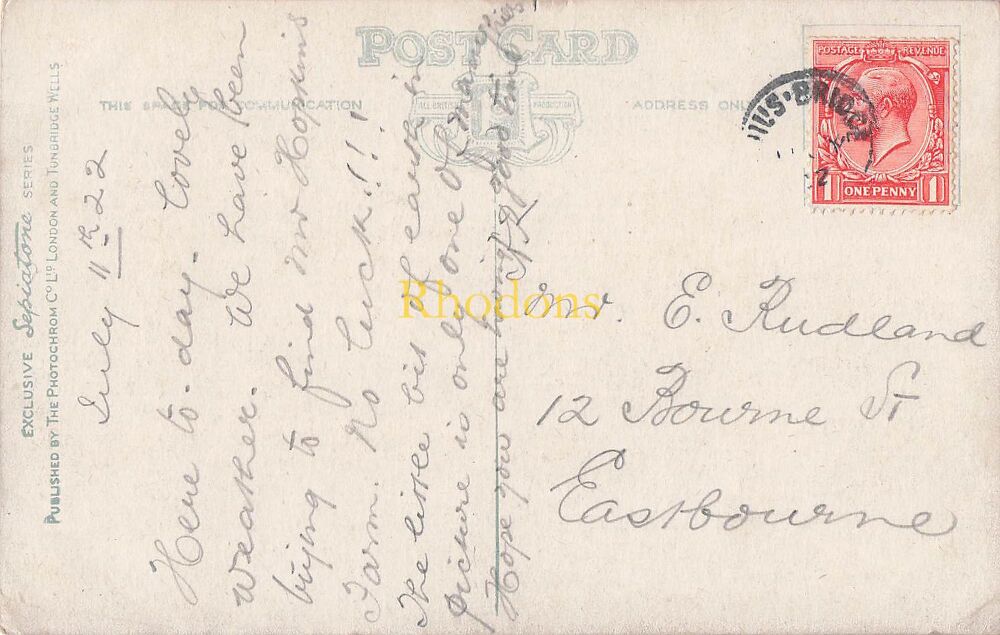 POST CARD
THIS SPACE FOR COMMUNICATION
ADDRESS ONLY
ALL BRITISH PRODUCTION
EXCLUSIVE Sepiatone SERIES
PUBLISHED BY THE PHOTOCHROM CO LTD LONDON AND TUNBRIDGE WELLS
July 11th 22
Here to-day. Lovely
weather. We have been
trying to find Mr Hopkins
Farm. No luck!!!
The little bit of earth in
picture is only one of many
Hope you are having good times
Mr. E. Rudland
12 Bourne St
Eastbourne
POSTAGE REVENUE
1 ONE PENNY 1
BRIDGE
Rhodons